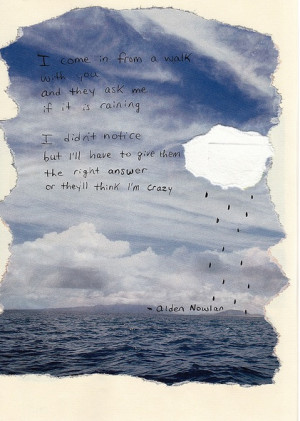 I come in from a walk
with you
and they ask me
if it is raining
I didn't notice
but I'll have to give them
the right answer
or they'll think I'm crazy
- Alden Nowlan